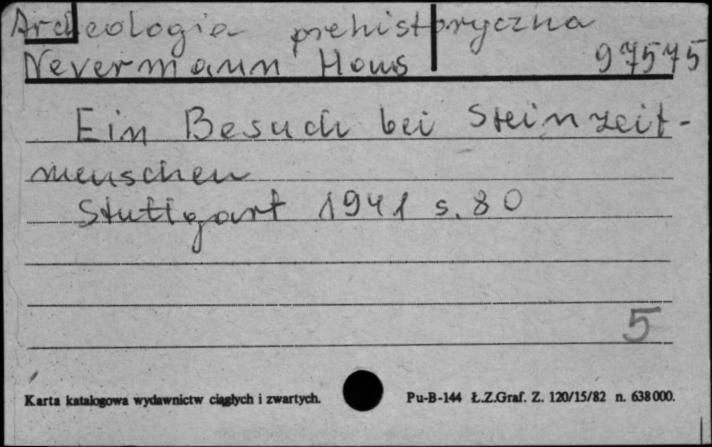 Archeologia prehistoryczna
Nevermann Hans 97575
Ein Besuch bei Steinzeit-
menschen
Stuttgart 1941 s. 80
5
Karta katalogowa wydawnictw ciągłych i zwartych. Pu-B-144 Ł.Z.Graf. Z. 120/15/82 n. 638000.